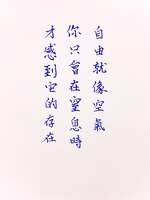 自由就像空氣
你只會在窒息時
才感到它的存在